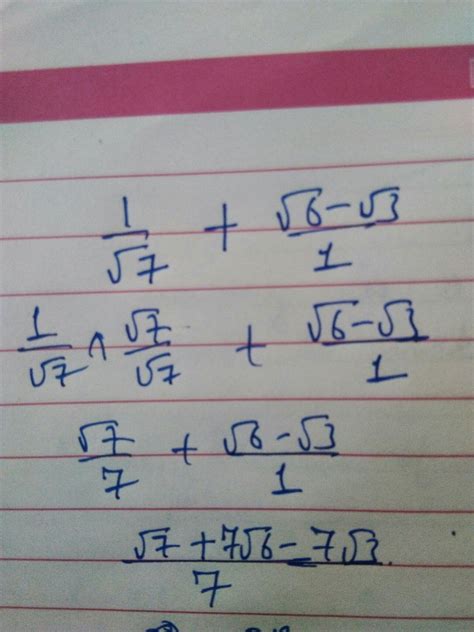 1/√7 + (√6-√3)/1
1/√7 ∧ √7/√7 + (√6-√3)/1
√7/7 + (√6-√3)/1
(√7+7√6-7√3)/7